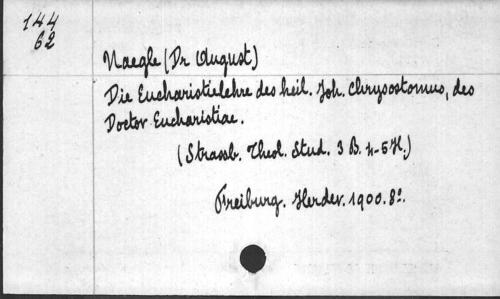 144
62
Naegle (Dr August)
Die Eucharistielehre des heil. Joh. Chrysostomus, des
Doctor Eucharistiae.
(Strassb. Theol. Stud. 3 B. 4-5 H.)
Freiburg. Herder. 1900. 8º.